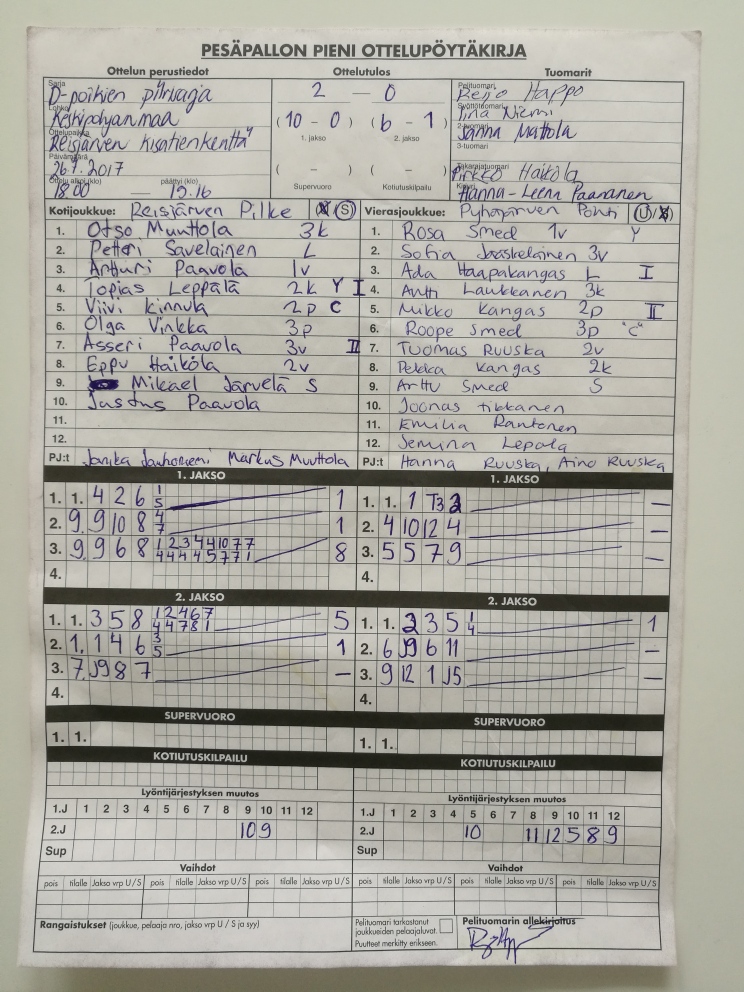 PESÄPALLON PIENI OTTELUPÖYTÄKIRJA
Ottelun perustiedot Ottelutulos Tuomarit
Sarja D-poikien piirisarja 2 — 0 Pelituomari Reijo Happo
Lohko Keskipohjanmaa (10 - 0) (6 - 1) Syöttötuomari Tiina Niemi
Ottelupaikka Reisjärven kisatienkenttä 1. jakso 2. jakso 2-tuomari Sanna Mattola
3-tuomari
Päivämäärä 26.7.2017 ( - ) ( - ) Takarajatuomari Pirkko Haikola
Ottelu alkoi (klo) 18.00 — päättyi (klo) 15.16 Supervuoro Kotiutuskilpailu Kirjuri Hanna-Leena Paananen
Kotijoukkue: Reisjärven Pilke U/S Vierasjoukkue: Pyhäjärven Pohti U/S
1. Otso Muuttola 3k 1. Rosa Smed 1v Y
2. Petteri Savelainen L 2. Sofia Jääskeläinen 3v
3. Artturi Paavola 1v 3. Ada Haapakangas L I
4. Topias Leppälä 2k Y I 4. Antti Laukkanen 3k
5. Viivi Kinnula 2p C 5. Mikko Kangas 2p II
6. Olga Vinkka 3p 6. Roope Smed 3p "C"
7. Asseri Paavola 3v II 7. Tuomas Ruuska 2v
8. Eppu Haikola 2v 8. Pekka Kangas 2k
9. Mikael Järvelä S 9. Arttu Smed S
10. Justus Paavola 10. Joonas Tikkanen
11. 11. Emilia Rantonen
12. 12. Jemina Lepola
PJ:t Markus Muuttola PJ:t Hanna Ruuska, Aino Ruuska
1. JAKSO 1. JAKSO
1. 1. 4 2 6 1/5 1 1. 1. 1 T3 2 —
2. 9 9 10 8 4/7 1 2. 4 10 12 4 —
3. 9 9 6 8 1/4 2/4 3/4 4/4 4/5 10/7 7/7 7/1 8 3. 5 5 7 9 —
4. 4.
2. JAKSO 2. JAKSO
1. 1. 3 5 8 1/4 2/4 4/7 6/8 7/1 5 1. 1. 2 3 5 1/4 1
2. 1. 1 4 6 3/5 1 2. 6 J9 6 11 —
3. 7. J9 8 7 — 3. 9 12 1 J5 —
4. 4.
SUPERVUORO SUPERVUORO
1. 1. 1. 1.
KOTIUTUSKILPAILU KOTIUTUSKILPAILU
Lyöntijärjestyksen muutos Lyöntijärjestyksen muutos
1.J 1 2 3 4 5 6 7 8 9 10 11 12 1.J 1 2 3 4 5 6 7 8 9 10 11 12
2.J 10 9 2.J 10 11 12 5 8 9
Sup Sup
Vaihdot Vaihdot
pois tilalle Jakso vrp U/S pois tilalle Jakso vrp U/S pois tilalle Jakso vrp U/S pois tilalle Jakso vrp U/S pois tilalle Jakso vrp U/S pois tilalle Jakso vrp U/S
Rangaistukset (joukkue, pelaaja nro, jakso vrp U / S ja syy) Pelituomari tarkastanut joukkueiden pelaajaluvat. Puutteet merkitty erikseen. Pelituomarin allekirjoitus